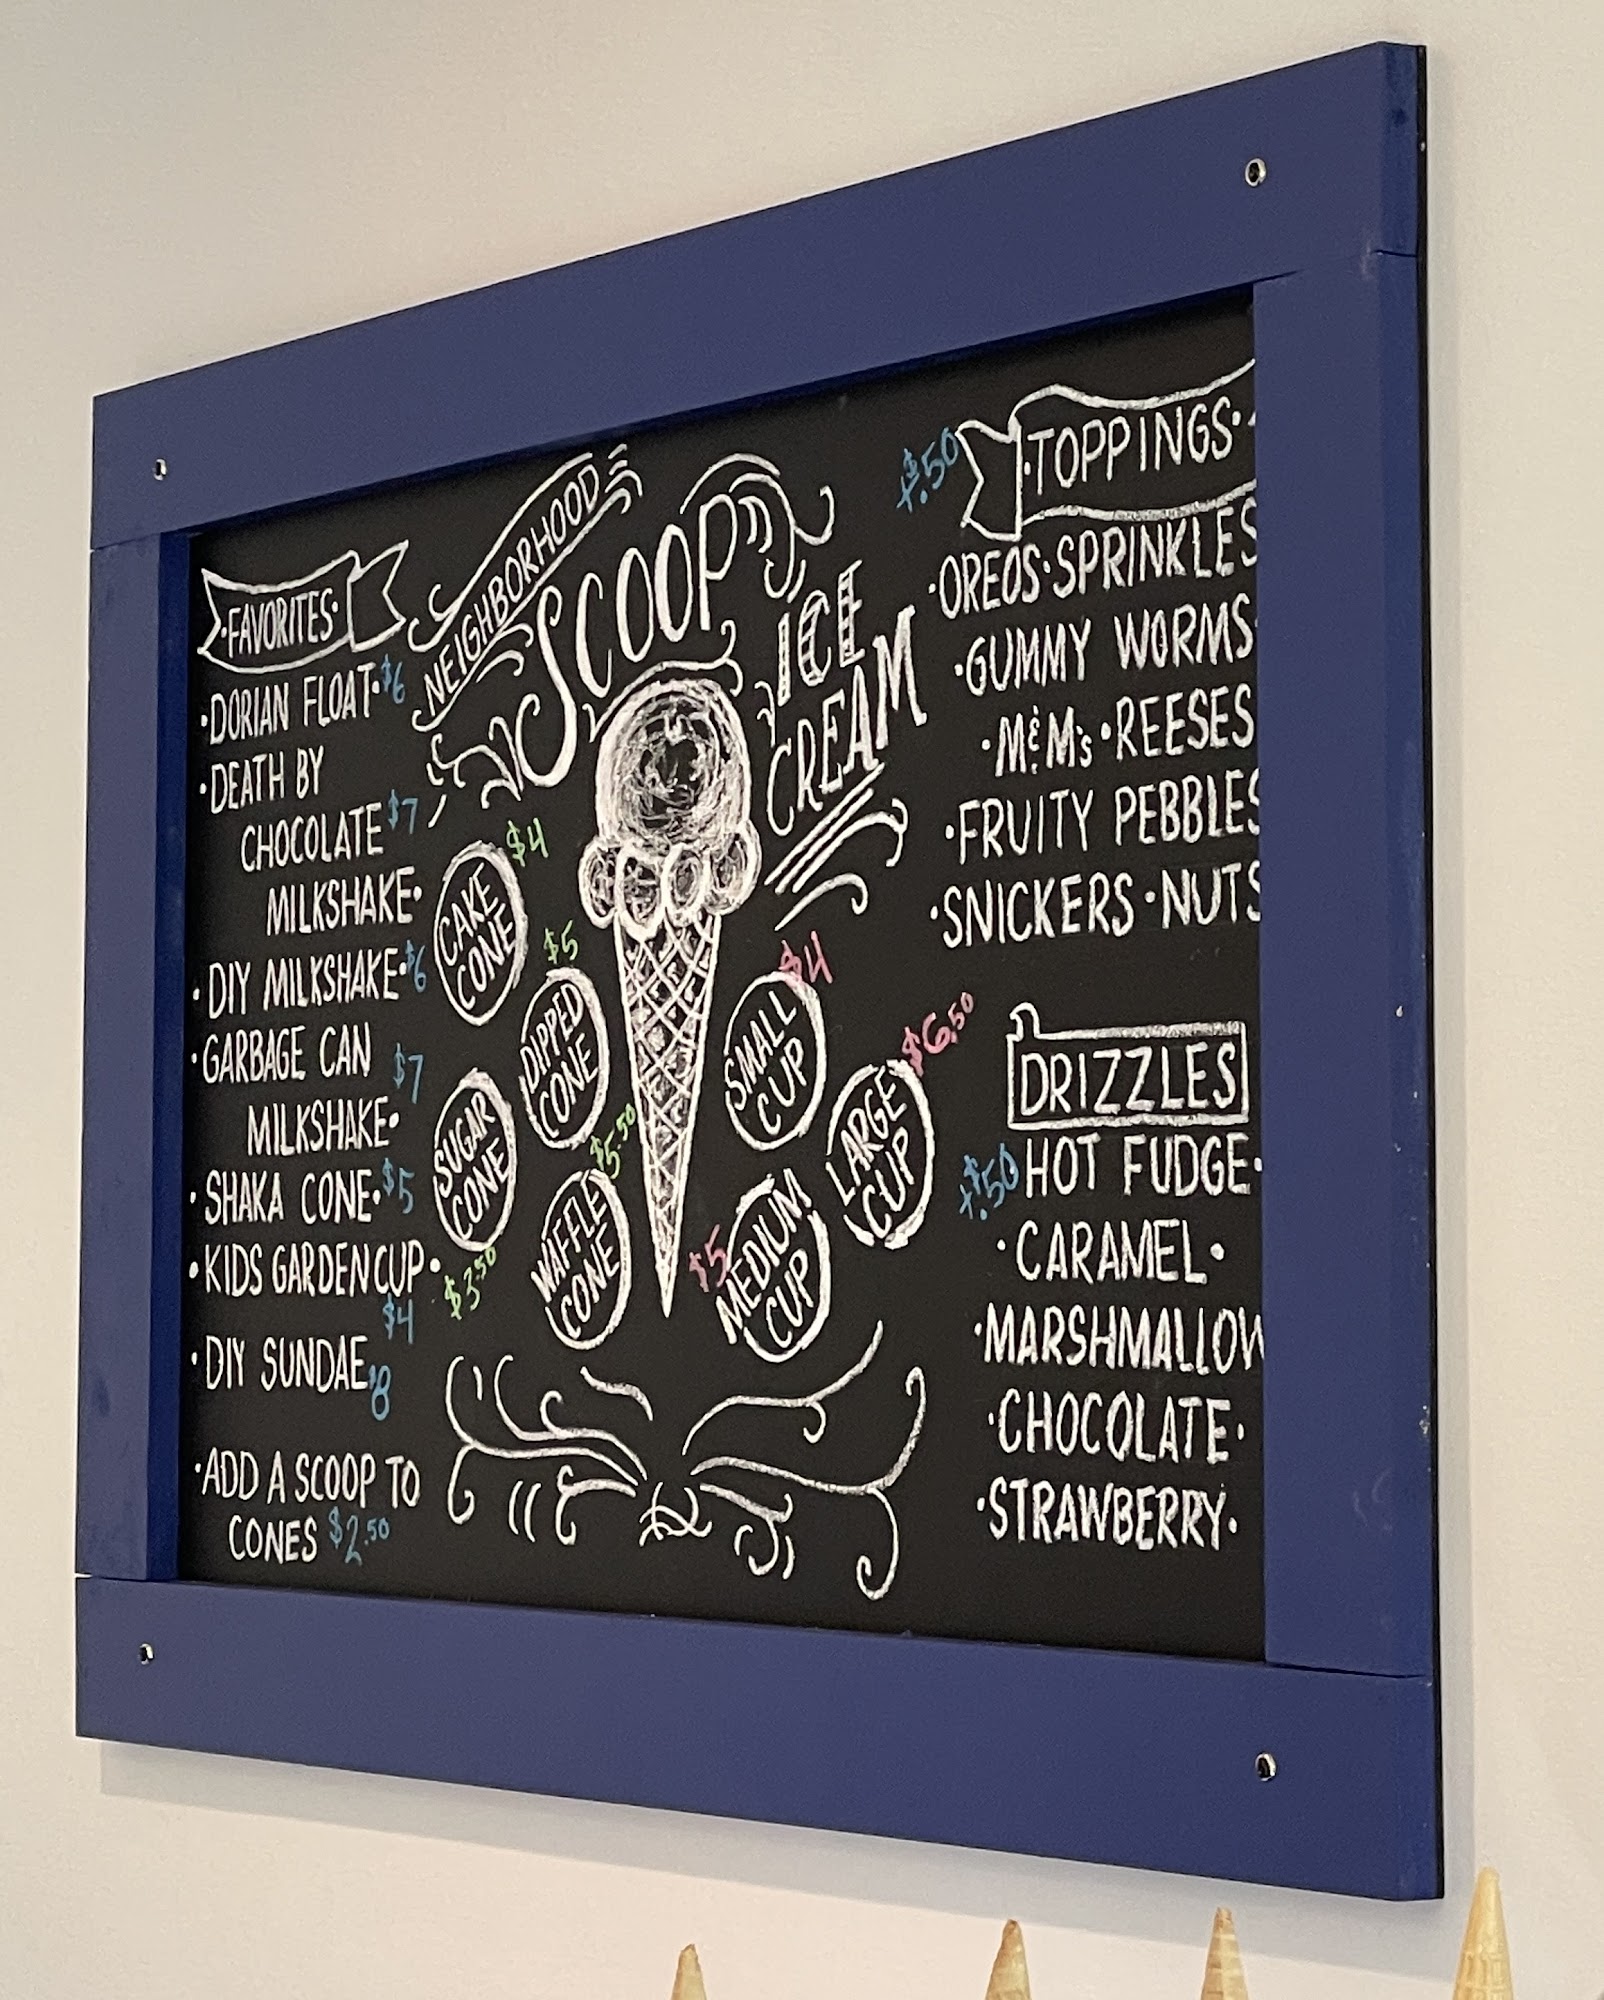 ·FAVORITES·
·DORIAN FLOAT· $6
·DEATH BY
CHOCOLATE $7
MILKSHAKE·
·DIY MILKSHAKE· $6
·GARBAGE CAN
$7
MILKSHAKE·
·SHAKA CONE· $5
·KIDS GARDEN CUP·
$4
·DIY SUNDAE $8
·ADD A SCOOP TO
CONES $2.50
NEIGHBORHOOD
SCOOP
ICE
CREAM
$4
CAKE
CONE
$5
DIPPED
CONE
SUGAR
CONE
$3.50
$5.50
WAFFLE
CONE
$4
SMALL
CUP
$6.50
LARGE
CUP
$5
MEDIUM
CUP
+$.50 ·TOPPINGS·
·OREOS·SPRINKLES
·GUMMY WORMS
·M&M's·REESES
·FRUITY PEBBLES
·SNICKERS·NUTS
DRIZZLES
+$.50 HOT FUDGE·
·CARAMEL·
·MARSHMALLOW
·CHOCOLATE·
·STRAWBERRY·